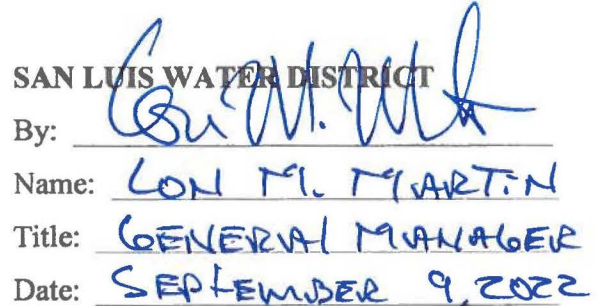 SAN LUIS WATER DISTRICT
By: Lon M. Mart
Name: LON M. MARTIN
Title: GENERAL MANAGER
Date: SEPTEMBER 9, 2022